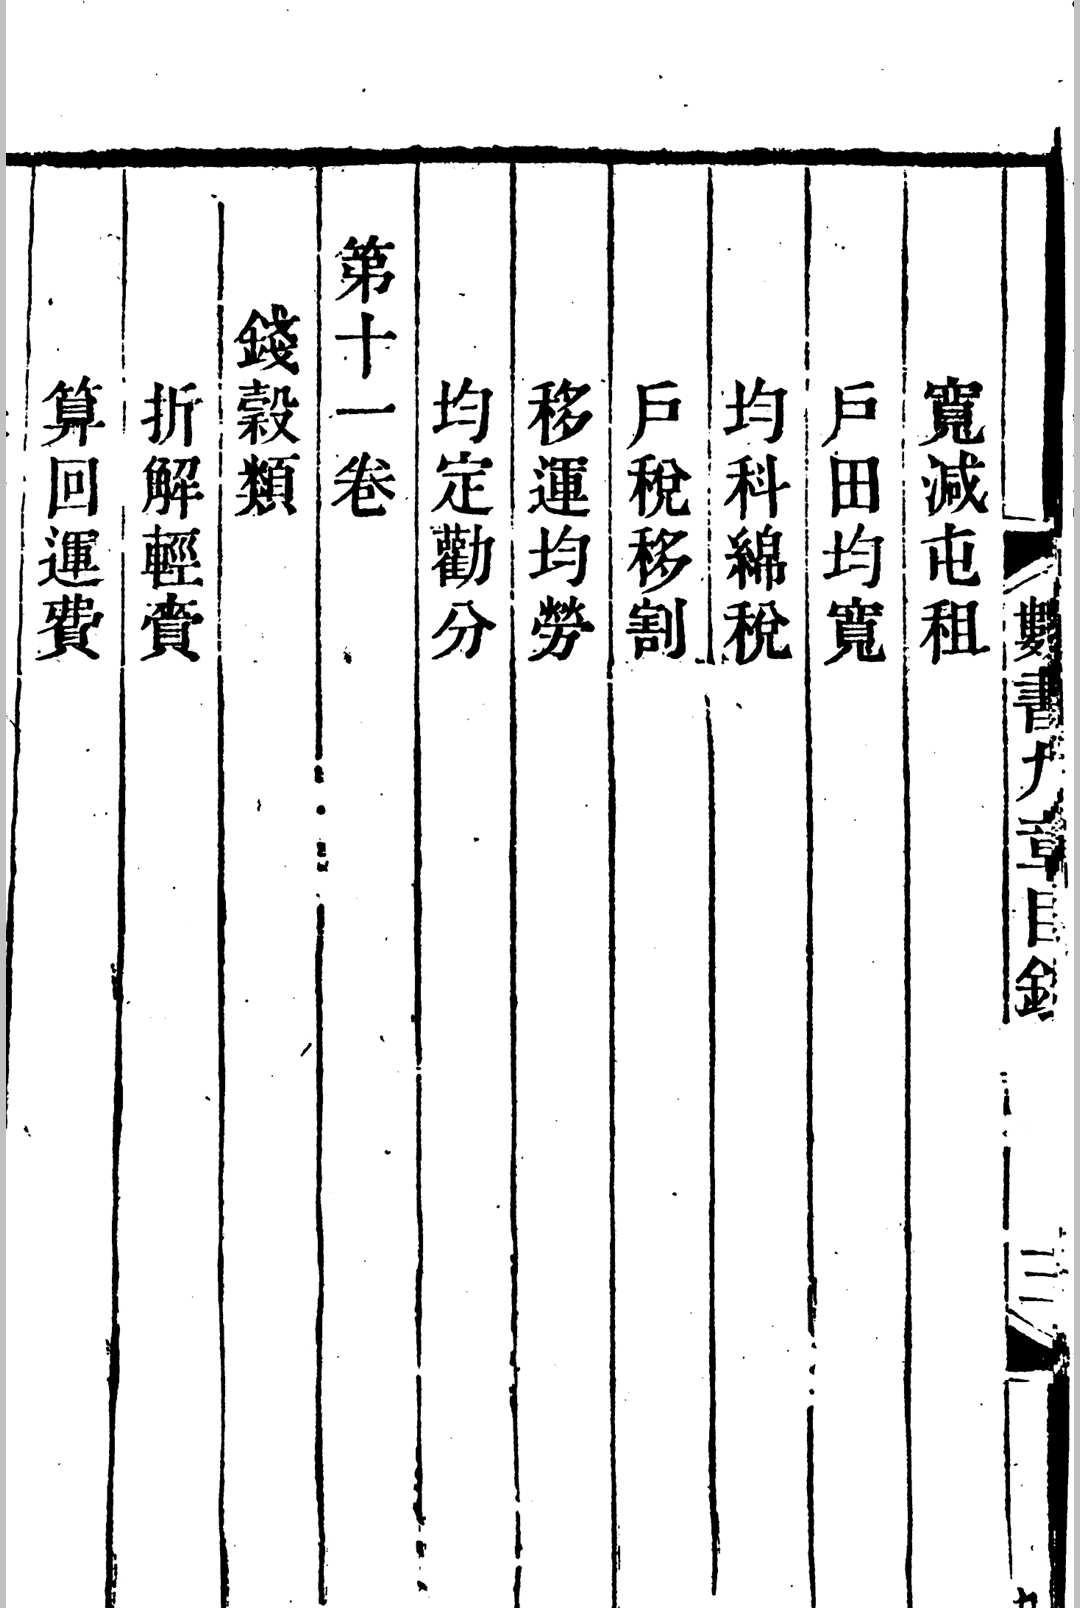 數書九章目錄
三
寬減屯租
戶田均寬
均科綿稅
戶稅移割
移運均勞
均定勸分
第十一卷
錢穀類
折解輕賫
算回運費